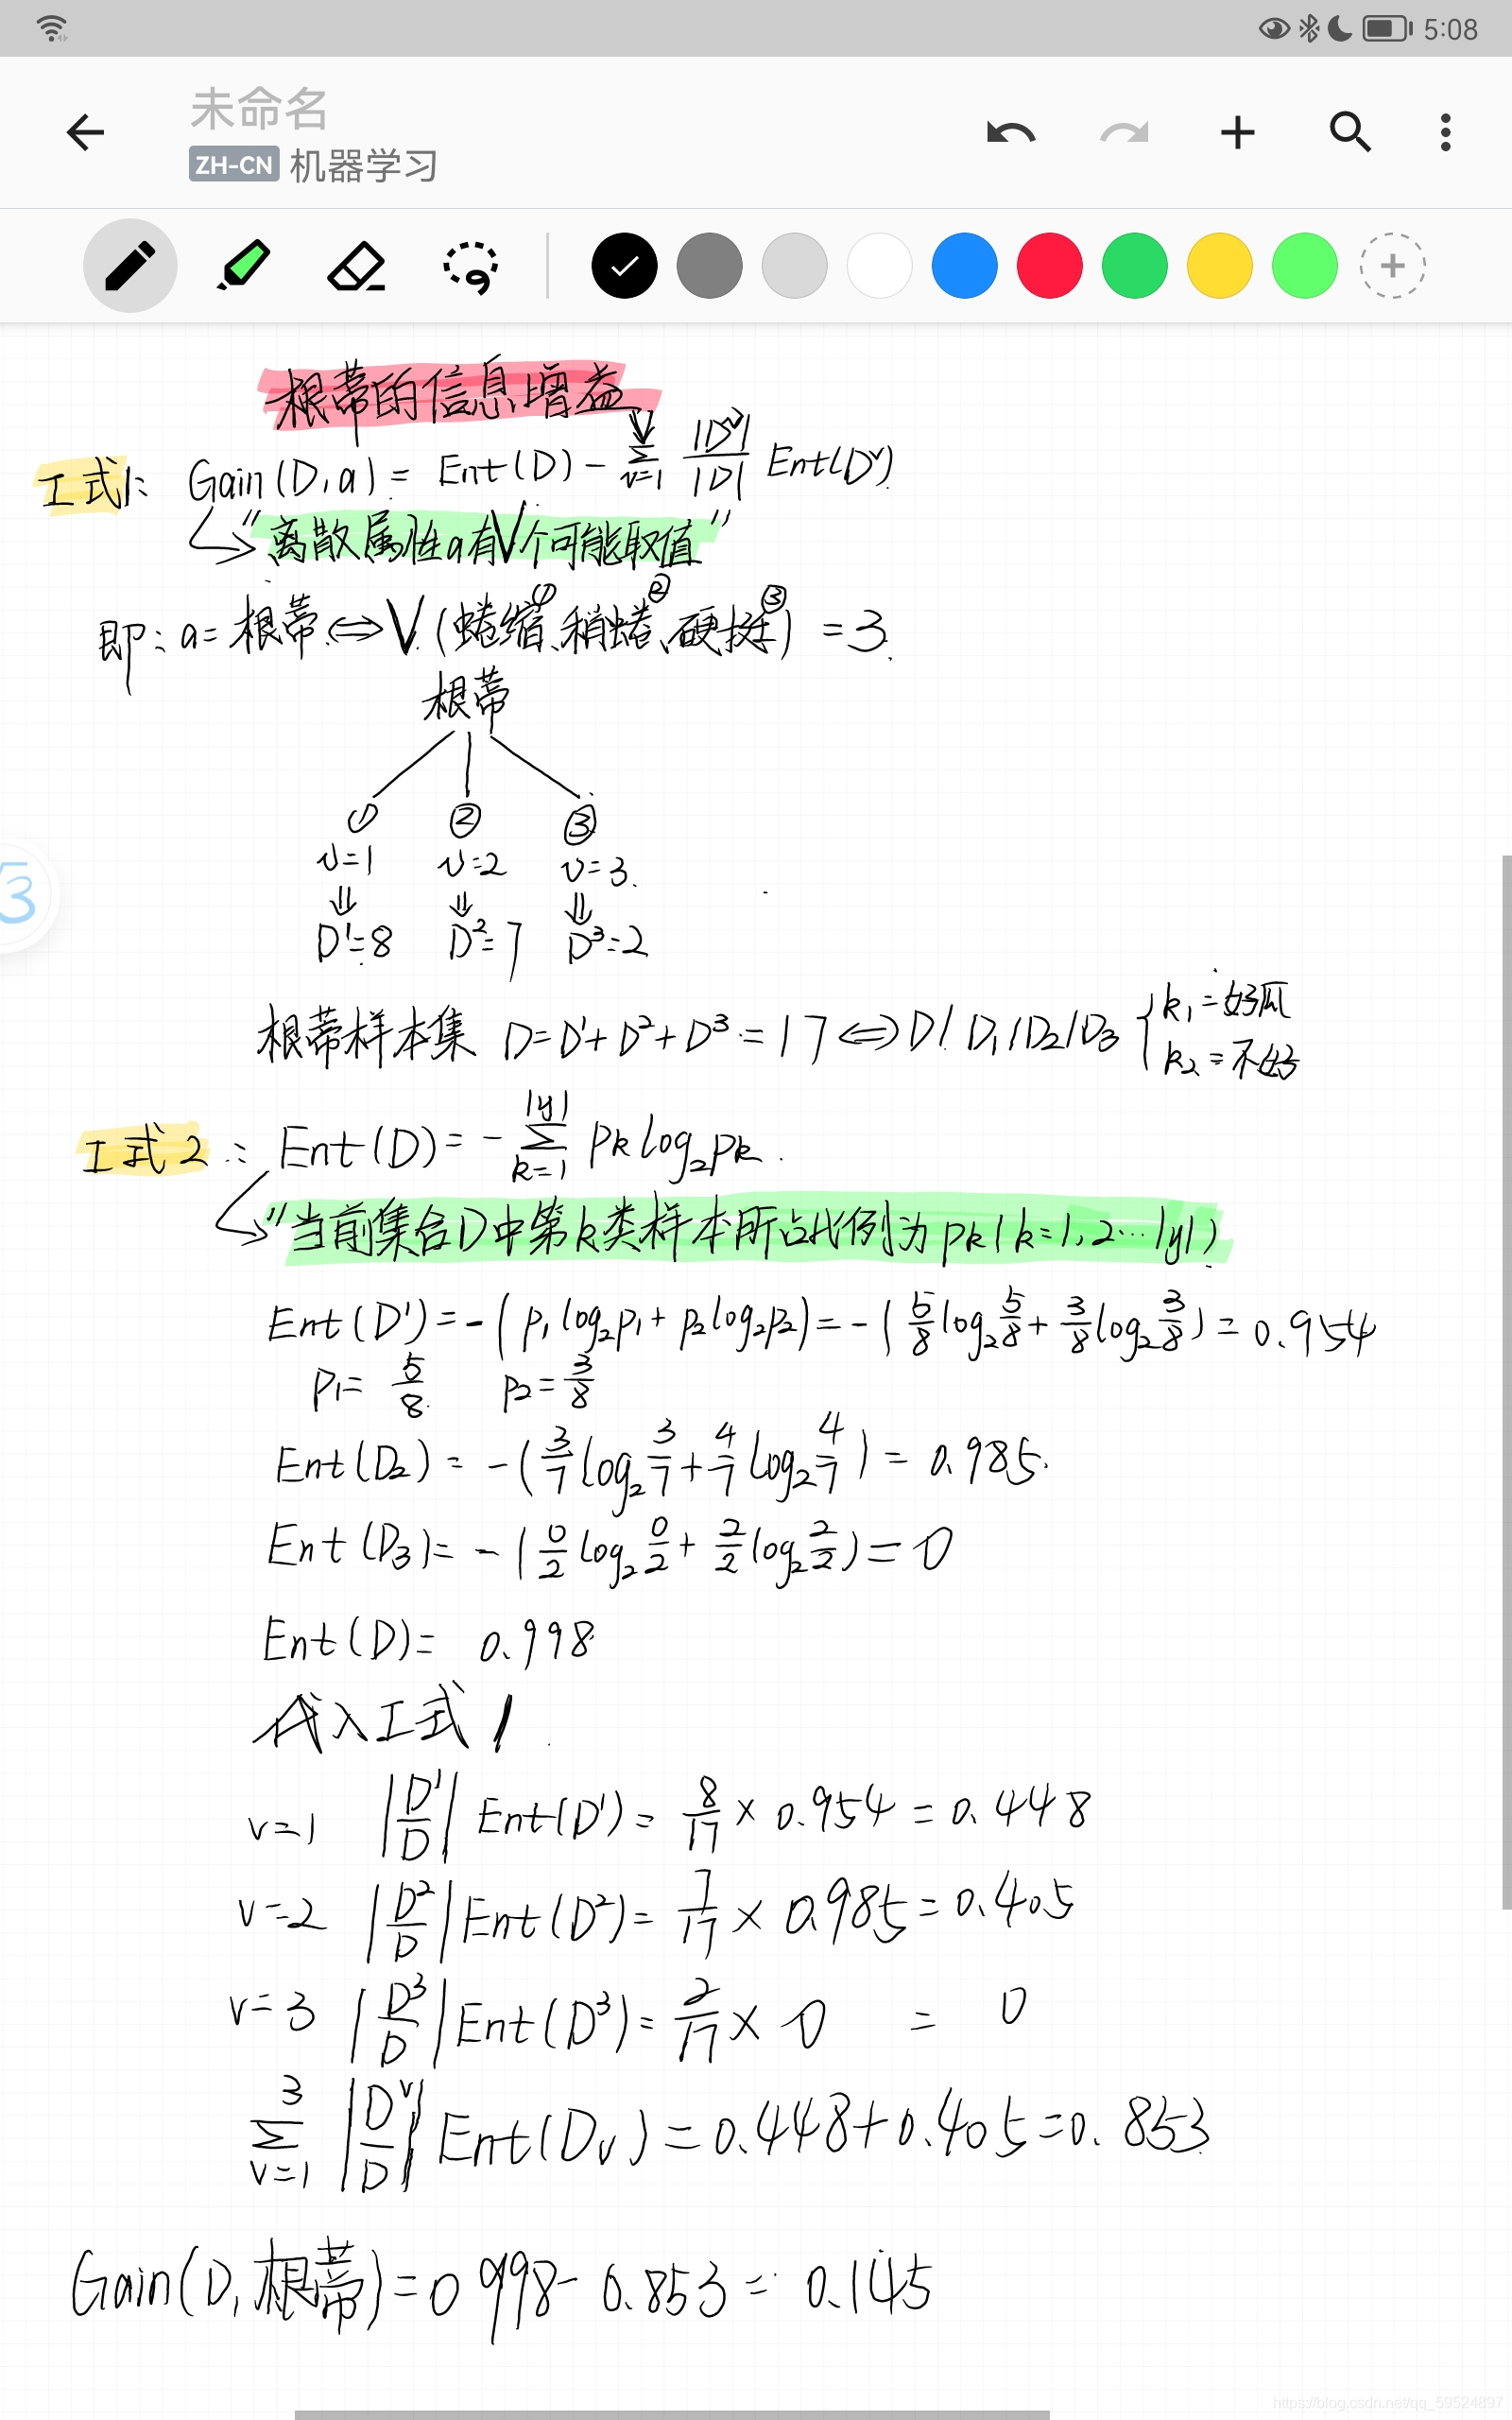 5:08
未命名
ZH-CN 机器学习
根蒂的信息增益
工式1: Gain(D,a) = Ent(D) - \sum_{v=1}^{V} \frac{|D^v|}{|D|} Ent(D^v)
"离散属性a有V个可能取值"
即: a=根蒂⇔V(蜷缩①、稍蜷②、硬挺③) = 3.
根蒂
① ② ③
v=1 v=2 v=3.
⇓ ⇓ ⇓
D¹=8 D²=7 D³=2
3
根蒂样本集 D=D¹+D²+D³=17⇔D/D₁/D₂/D₃ { k₁=好瓜
k₂=不好
工式2: Ent(D) = -\sum_{k=1}^{|y|} pk log₂pk.
"当前集合D中第k类样本所占比例为pk(k=1,2…|y|)
Ent(D¹)=-(p₁log₂p₁+p₂log₂p₂)=-(5/8 log₂ 5/8 + 3/8 log₂ 3/8)=0.954
p₁=5/8 p₂=3/8
Ent(D₂)=-(3/7 log₂ 3/7 + 4/7 log₂ 4/7)=0.985.
Ent(D₃)=-(0/2 log₂ 0/2 + 2/2 log₂ 2/2)=0
Ent(D)= 0.998
代入工式1
v=1 |D¹/D| Ent(D¹)= 8/17 × 0.954 = 0.448
v=2 |D²/D| Ent(D²)= 7/17 × 0.985 = 0.405
v=3 |D³/D| Ent(D³)= 2/17 × 0 = 0
\sum_{v=1}^{3} |D^v/D| Ent(Dv)=0.448+0.405=0.853
Gain(D,根蒂)=0.998-0.853=0.145
https://blog.csdn.net/qq_59524897